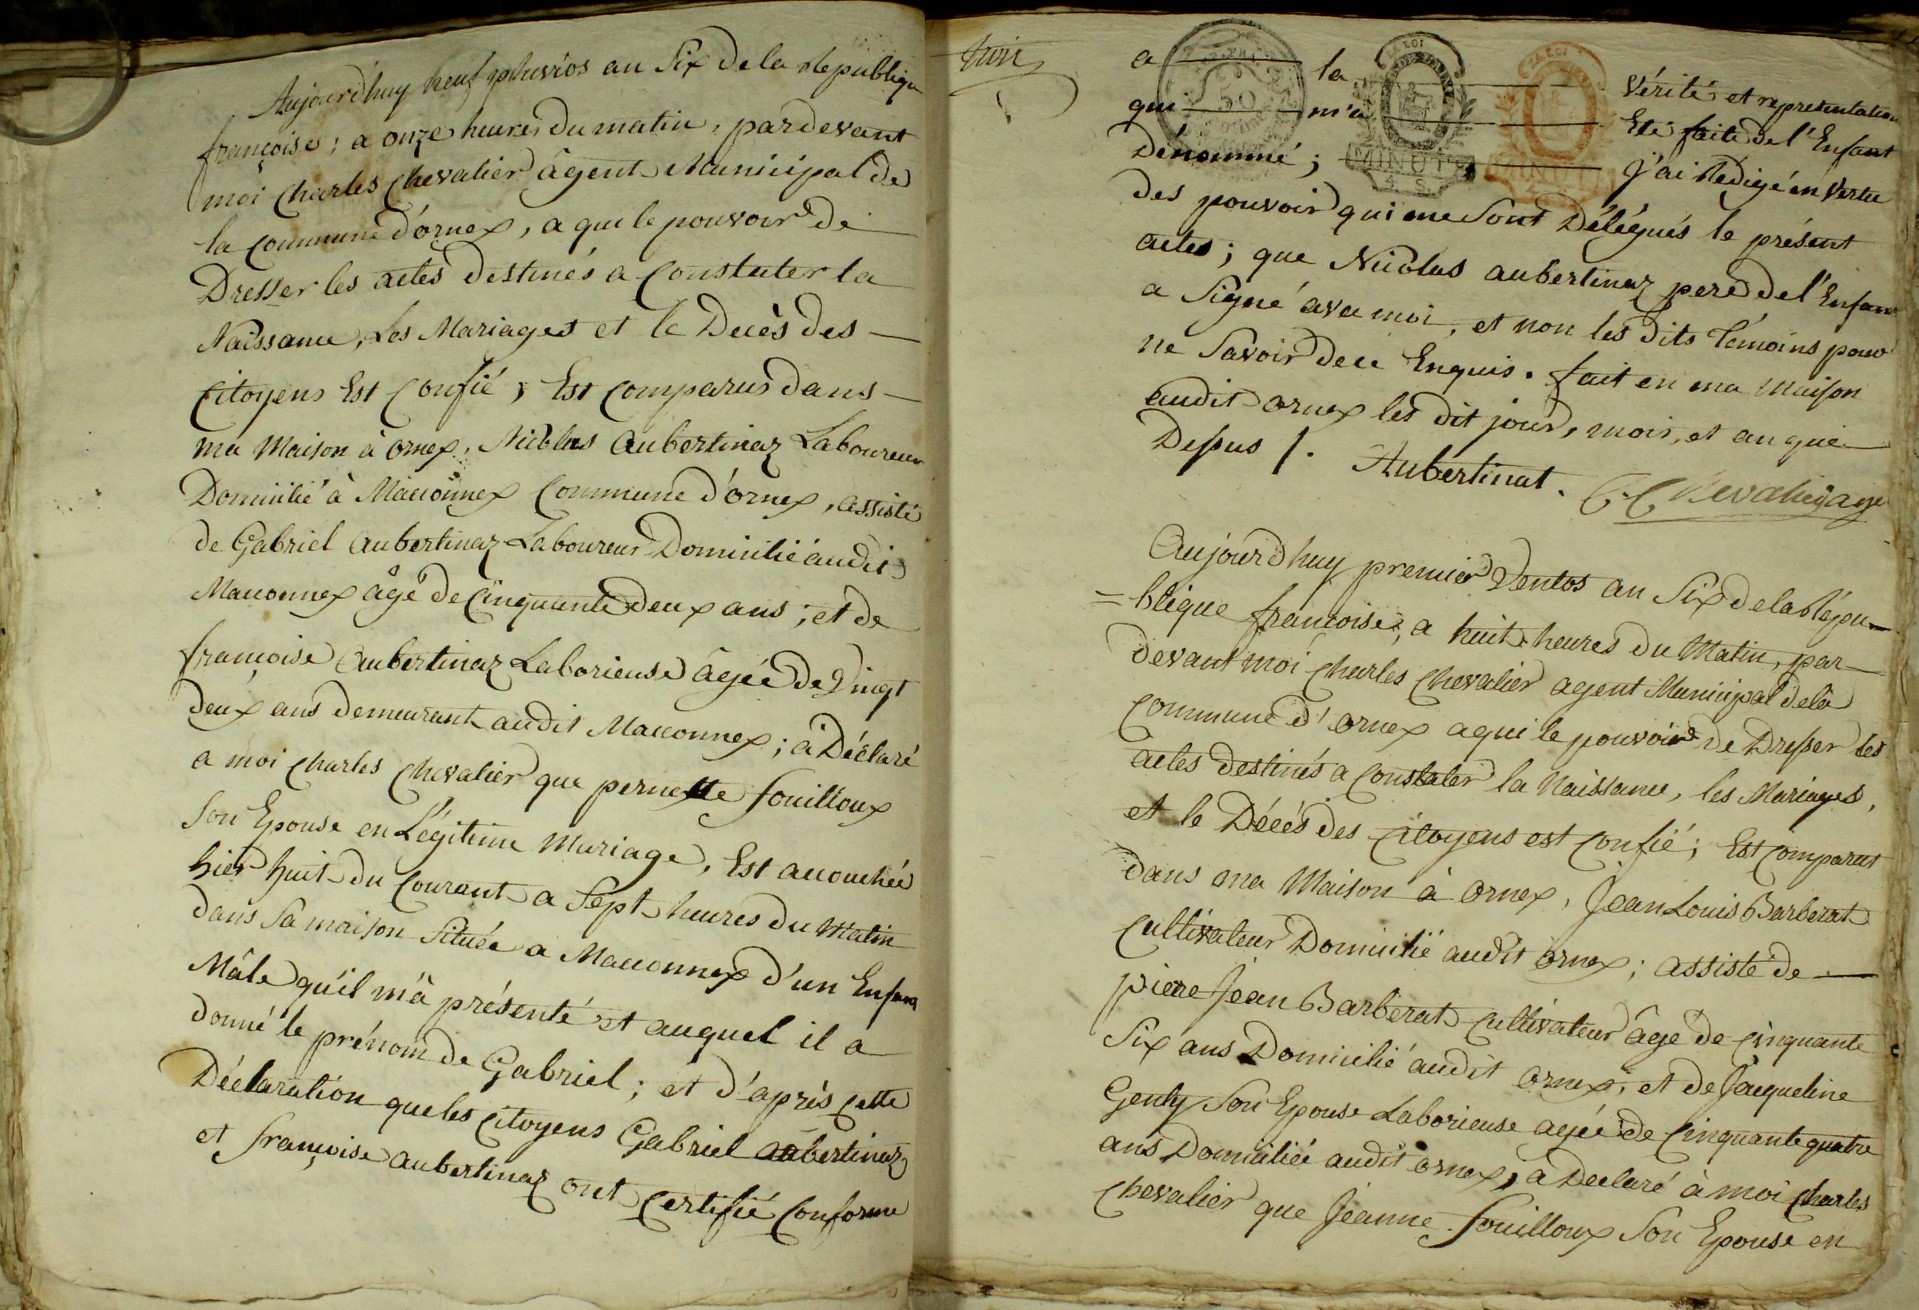 Aujourd'huy neuf pluvios an Six de la Republique
françoise; a onze heures du matin, pardevant
moi Charles Chevalier âgent Municipal de
la commune d'ornex, a qui le pouvoir de
Dresser les actes destinés a Constater la
Naissance, Les Mariages et le Decès des —
Citoyens Est Confié; Est Comparus dans —
ma Maison à ornex, Nicolas Aubertinaz Laboureur
Domicilié à Maconnex Commune d'ornex, assisté
de Gabriel Aubertinaz Laboureur Domicilié audit
Maconnex âgé de Cinquante deux ans; et de
françoise Aubertinaz Laborieuse âgée de Vingt
deux ans demeurant audit Maconnex; a Déclaré
a moi Charles Chevalier que pernette fouilloux
Son Epouse en Légitime Mariage, Est accouchée
hier huit du Courant a Sept heures du Matin
dans Sa maison Située a Maconnex d'un Enfant
Mâle qu'il m'a présenté et auquel il a
donné le prénom de Gabriel; et d'après cette
Déclaration que les Citoyens Gabriel aubertinaz
et françoise aubertinaz ont Certifié Conforme
a la Vérité et representation
qui m'a Eté faite de l'Enfant
Dénommé; J'ai Rédigé en Vertu
des pouvoir qui me Sont Délégués le présent
actes; que Nicolas aubertinaz pere de l'Enfant
a Signé avec moi, et non les dits Témoins pour
ne Savoir de ce Enquis. fait en ma Maison
audit ornex les dit jour, mois, et an que
Dessus /. Aubertinat. C Chevalier age
LA LOI
50
MINUTE
LA LOI
MINUTE
Aujourd'huy premier Ventos an Six de la Répu—
=blique françoise, a huit heures du Matin, par—
devant moi Charles Chevalier agent Municipal de la
Commune d'ornex a qui le pouvoir de Dresser les
actes destinés a Constater la Naissance, les Mariages,
et le Décés des Citoyens est Confié; Est Comparut
dans ma Maison à ornex, Jean Louis Barberat
Cultivateur Domicilié audit ornex; assisté de —
pierre Jean Barberat Cultivateur âgé de Cinquante
Six ans Domicilié audit ornex, et de Jaqueline
Genty Son Epouse Laborieuse agée de Cinquante quatre
ans Domiciliée audit ornex, a Declaré à moi Charles
Chevalier que Jeanne fouilloux Son Epouse en